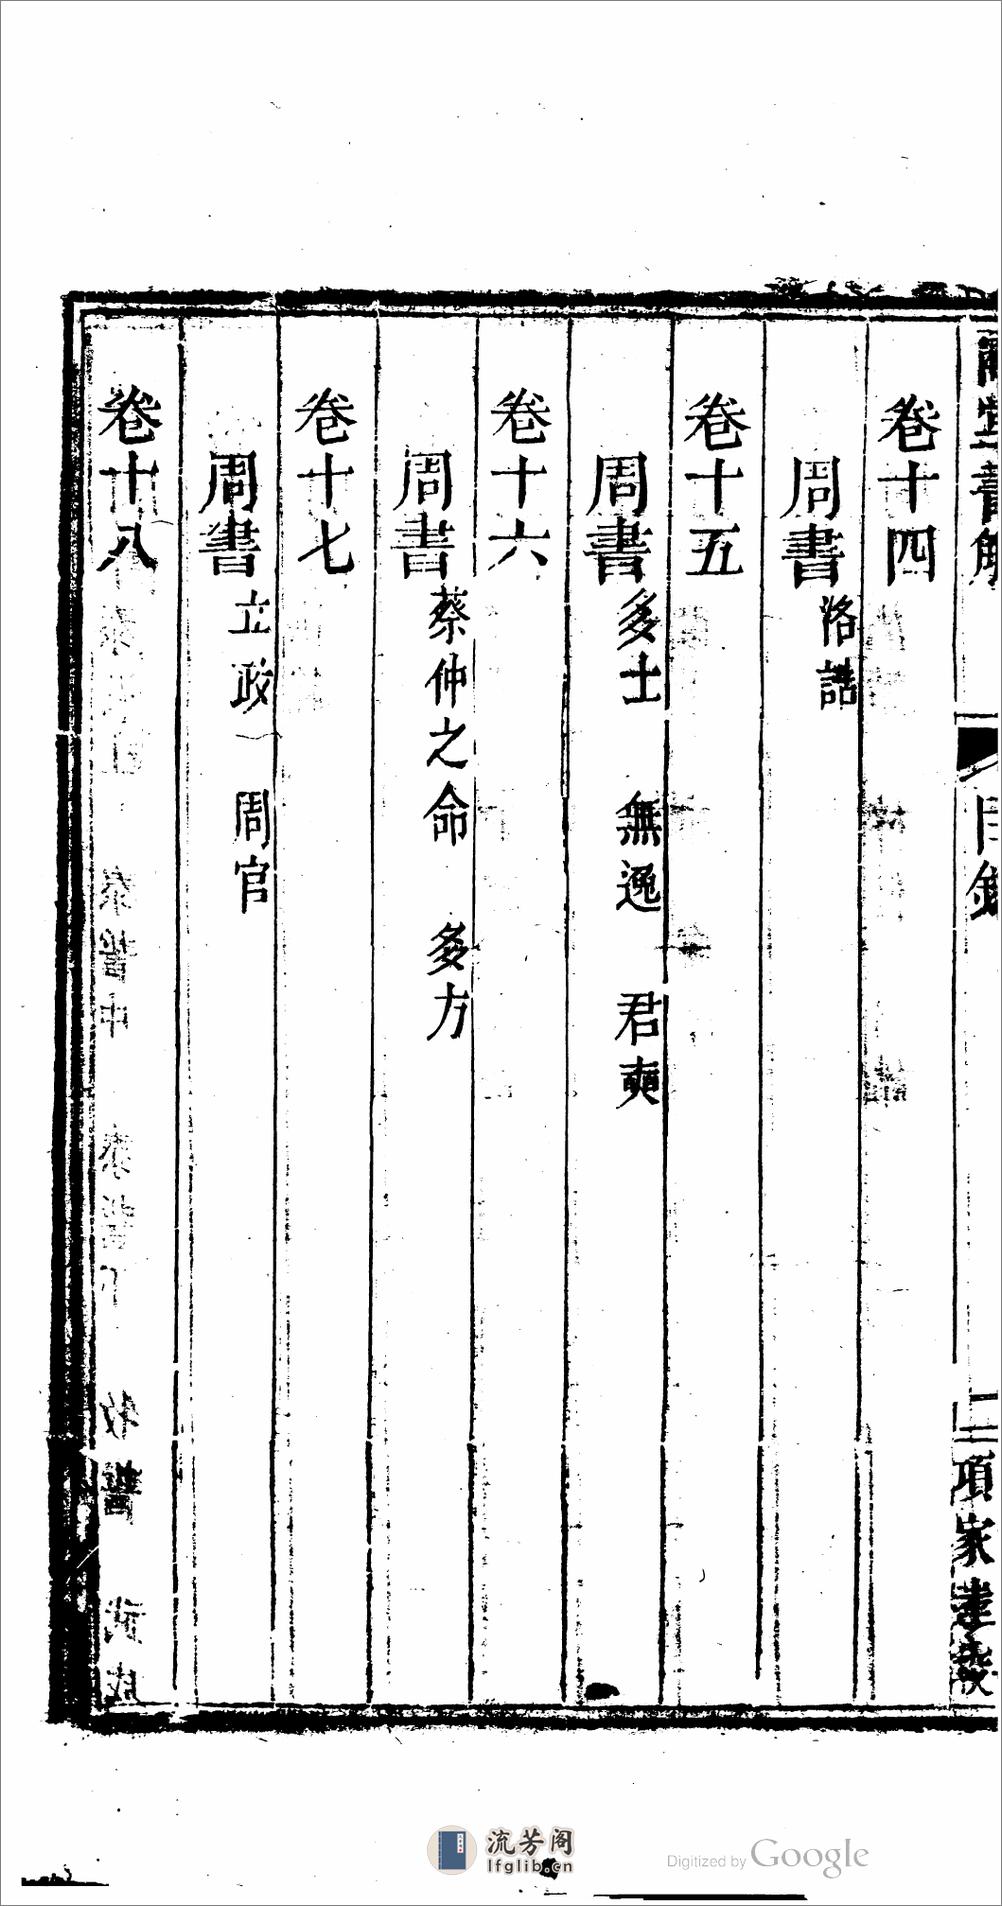 卷十四
周書洛誥
卷十五
周書多士 無逸 君奭
卷十六
周書蔡仲之命 多方
卷十七
周書立政 周官
卷十八
書
目錄
二
項家達
流芳阁
lfglib.cn
Digitized by Google